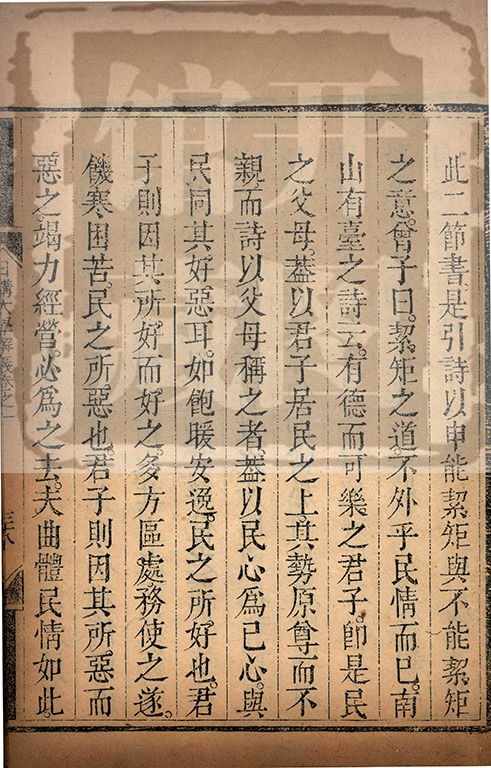 此二節書。是引詩以申能絜矩與不能絜矩
之意。曾子曰。絜矩之道。不外乎民情而已。南
山有臺之詩云。有德而可樂之君子。卽是民
之父母。葢以君子居民之上。其勢原尊而不
親。而詩以父母稱之者。葢以民心爲已心。與
民同其好惡耳。如飽暖安逸。民之所好也。君
子則因其所好而好之。多方區處。務使之遂。
饑寒困苦。民之所惡也。君子則因其所惡而
惡之。竭力經營。必爲之去。夫曲體民情如此。
日講